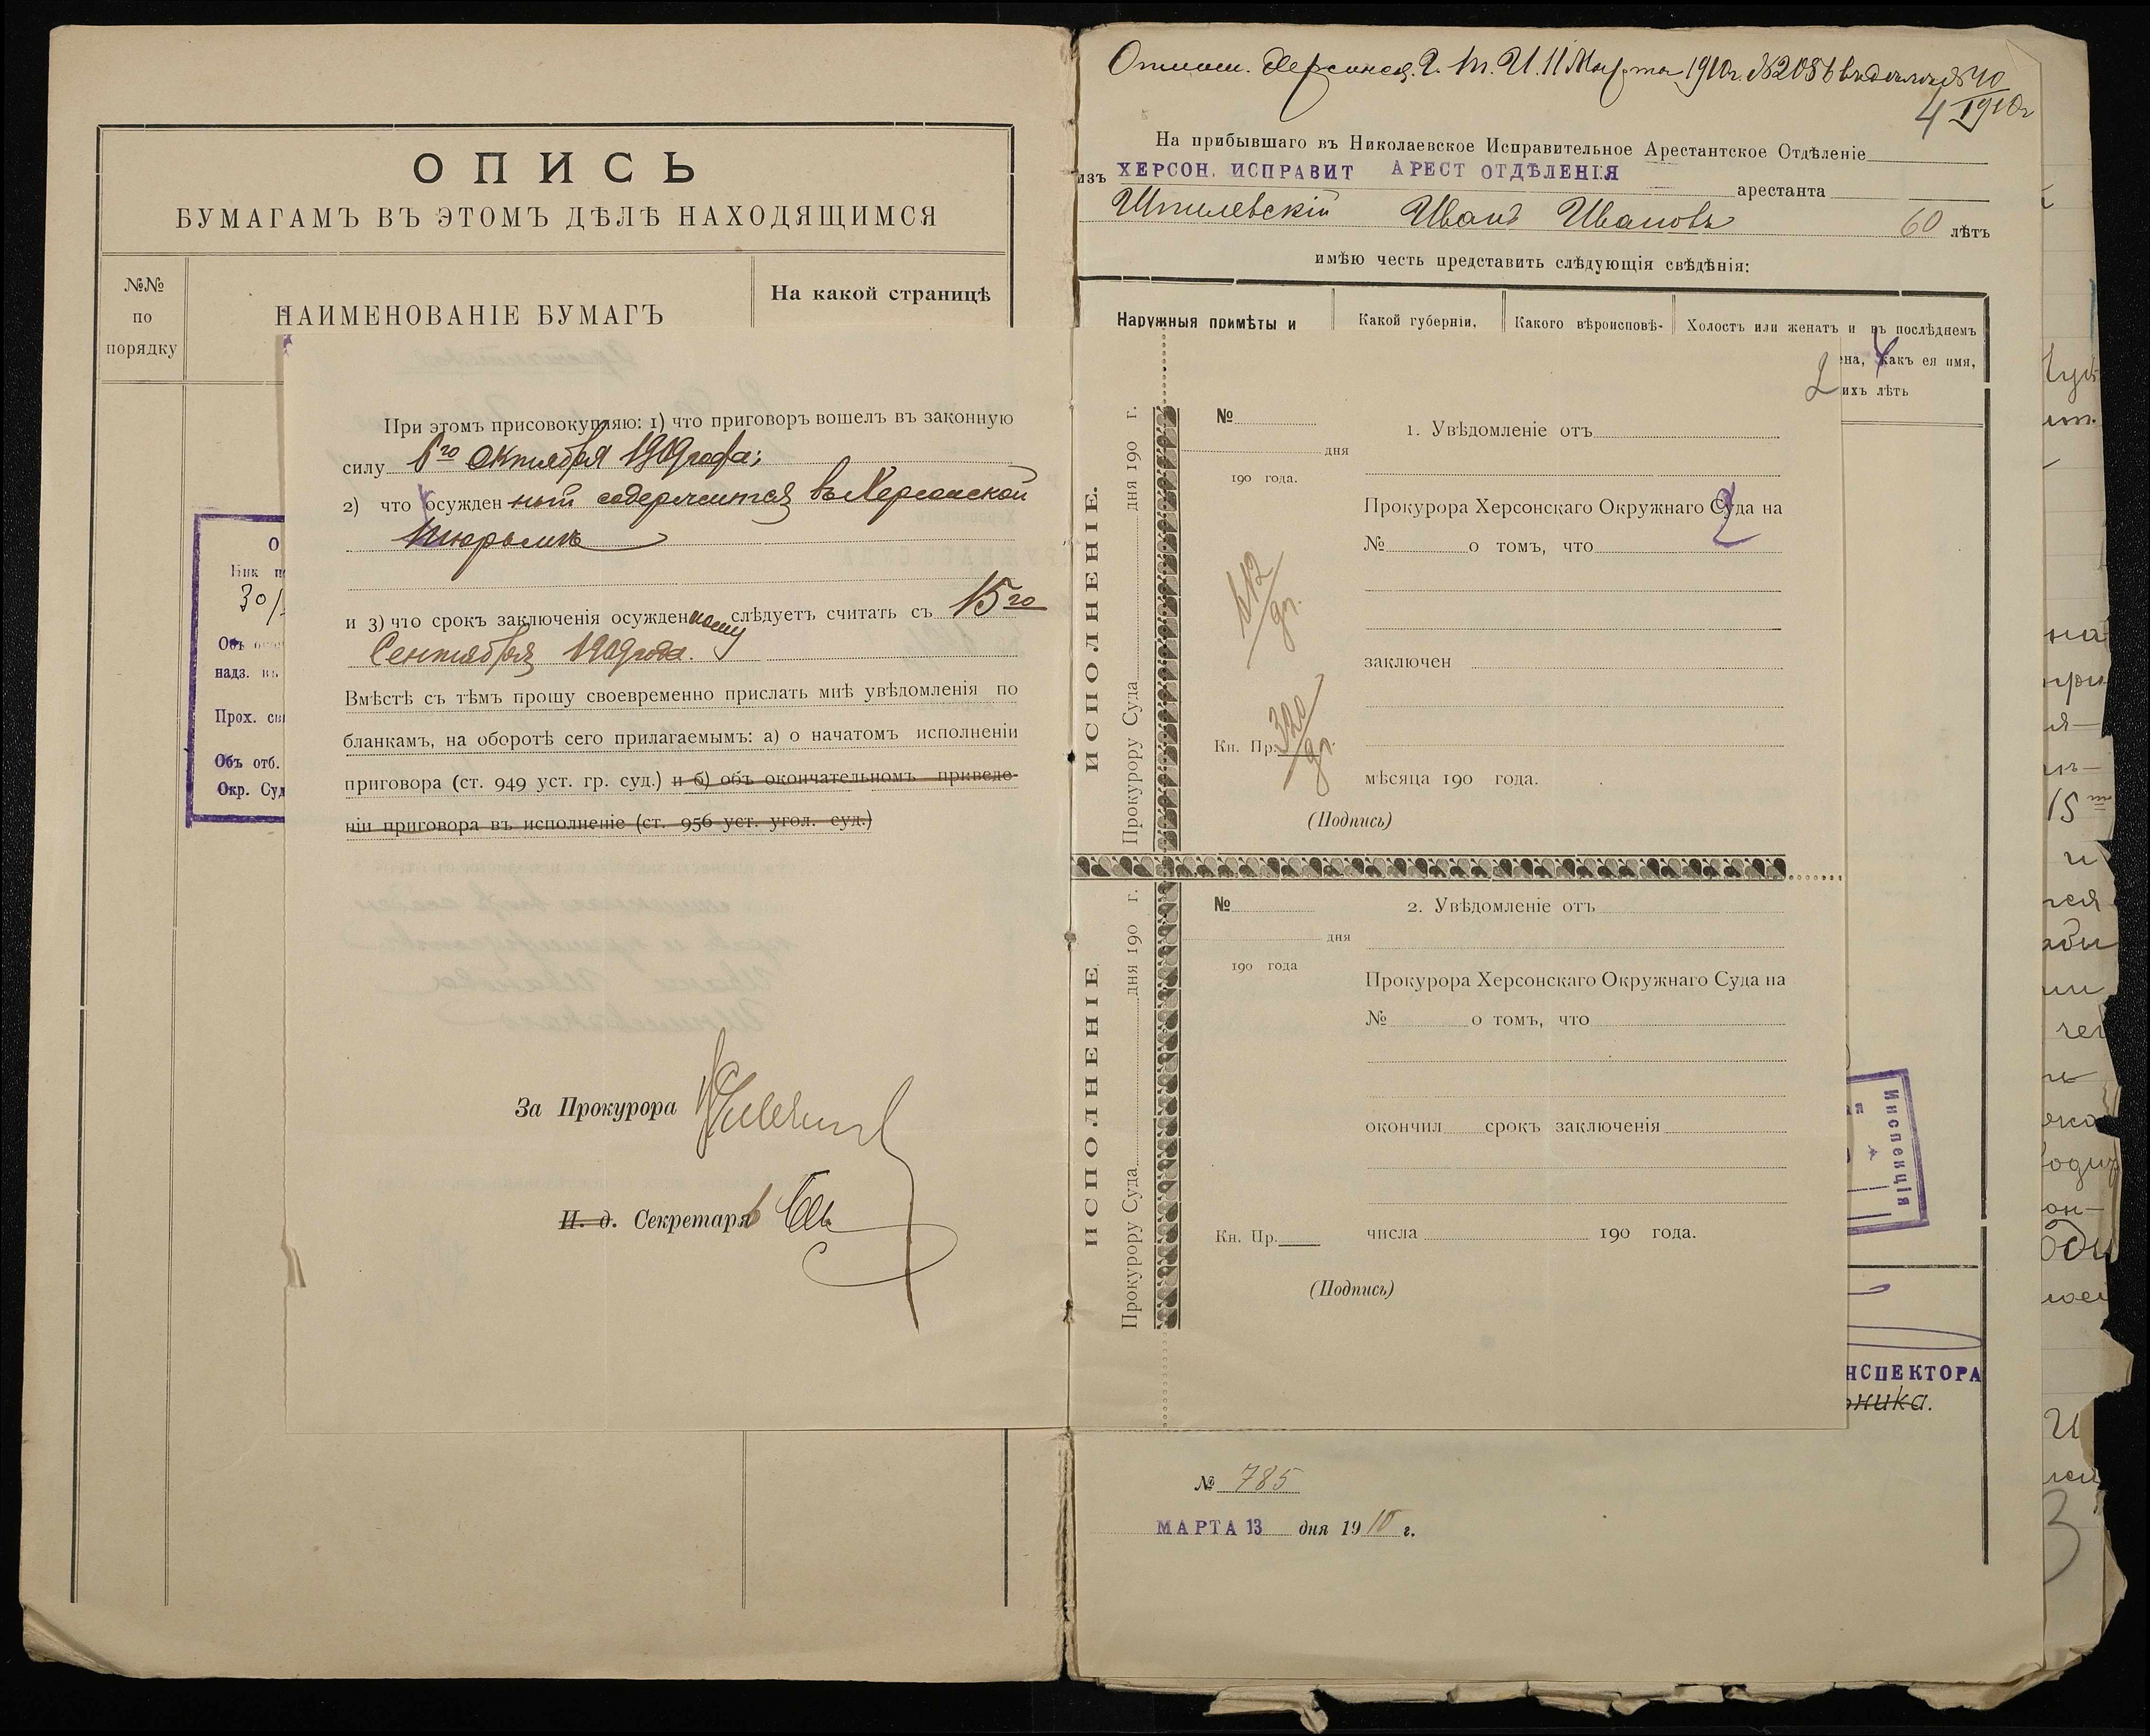 ОПИСЬ
БУМАГАМЪ ВЪ ЭТОМЪ ДѢЛѢ НАХОДЯЩИМСЯ
№№
по
порядку
НАИМЕНОВАНІЕ БУМАГЪ
На какой страницѣ
30/
надз. въ
Прох.
Объ отб.
Окр. Суд
При этомъ присовокупляю: 1) что приговоръ вошелъ въ законную
силу 6го Октября 1909 года;
2) что осужденный содержится въ Херсонской
тюрьмѣ
и 3) что срокъ заключенія осужденному слѣдуетъ считать съ 15го
Сентября 1909 года.
Вмѣстѣ съ тѣмъ прошу своевременно прислать мнѣ увѣдомленія по
бланкамъ, на оборотѣ сего прилагаемымъ: а) о начатомъ исполненіи
приговора (ст. 949 уст. гр. суд.) и б) объ окончательномъ приведе-
ніи приговора въ исполненіе (ст. 956 уст. угол. суд.)
За Прокурора
И. д. Секретаря
Херсонск. Г. Т. И. 11 Марта 1910 г. №2086 въ дѣлѣ № 40
4 1910 г
На прибывшаго въ Николаевское Исправительное Арестантское Отдѣленіе
изъ ХЕРСОН. ИСПРАВИТ АРЕСТ ОТДѢЛЕНІЯ арестанта
Шпилевскій Иванъ Ивановъ 60 лѣтъ
имѣю честь представить слѣдующія свѣдѣнія:
Наружныя примѣты и
Какой губерніи,
Какого вѣроисповѣ-
Холостъ или женатъ и въ послѣднемъ
ена, какъ ея имя,
ихъ лѣтъ
2
ИСПОЛНЕНІЕ.
Прокурору Суда дня 190 г.
№
дня
190 года.
612
320
Кн. Пр.
1. Увѣдомленіе отъ
Прокурора Херсонскаго Окружнаго Суда на
2
№ о томъ, что
заключен
мѣсяца 190 года.
(Подпись)
ИСПОЛНЕНІЕ.
Прокурору Суда дня 190 г.
№
дня
190 года
Кн. Пр.
2. Увѣдомленіе отъ
Прокурора Херсонскаго Окружнаго Суда на
№ о томъ, что
окончил срокъ заключенія
числа 190 года.
(Подпись)
Инспекція
НСПЕКТОРА
ника.
№ 785
МАРТА 13 дня 1910 г.